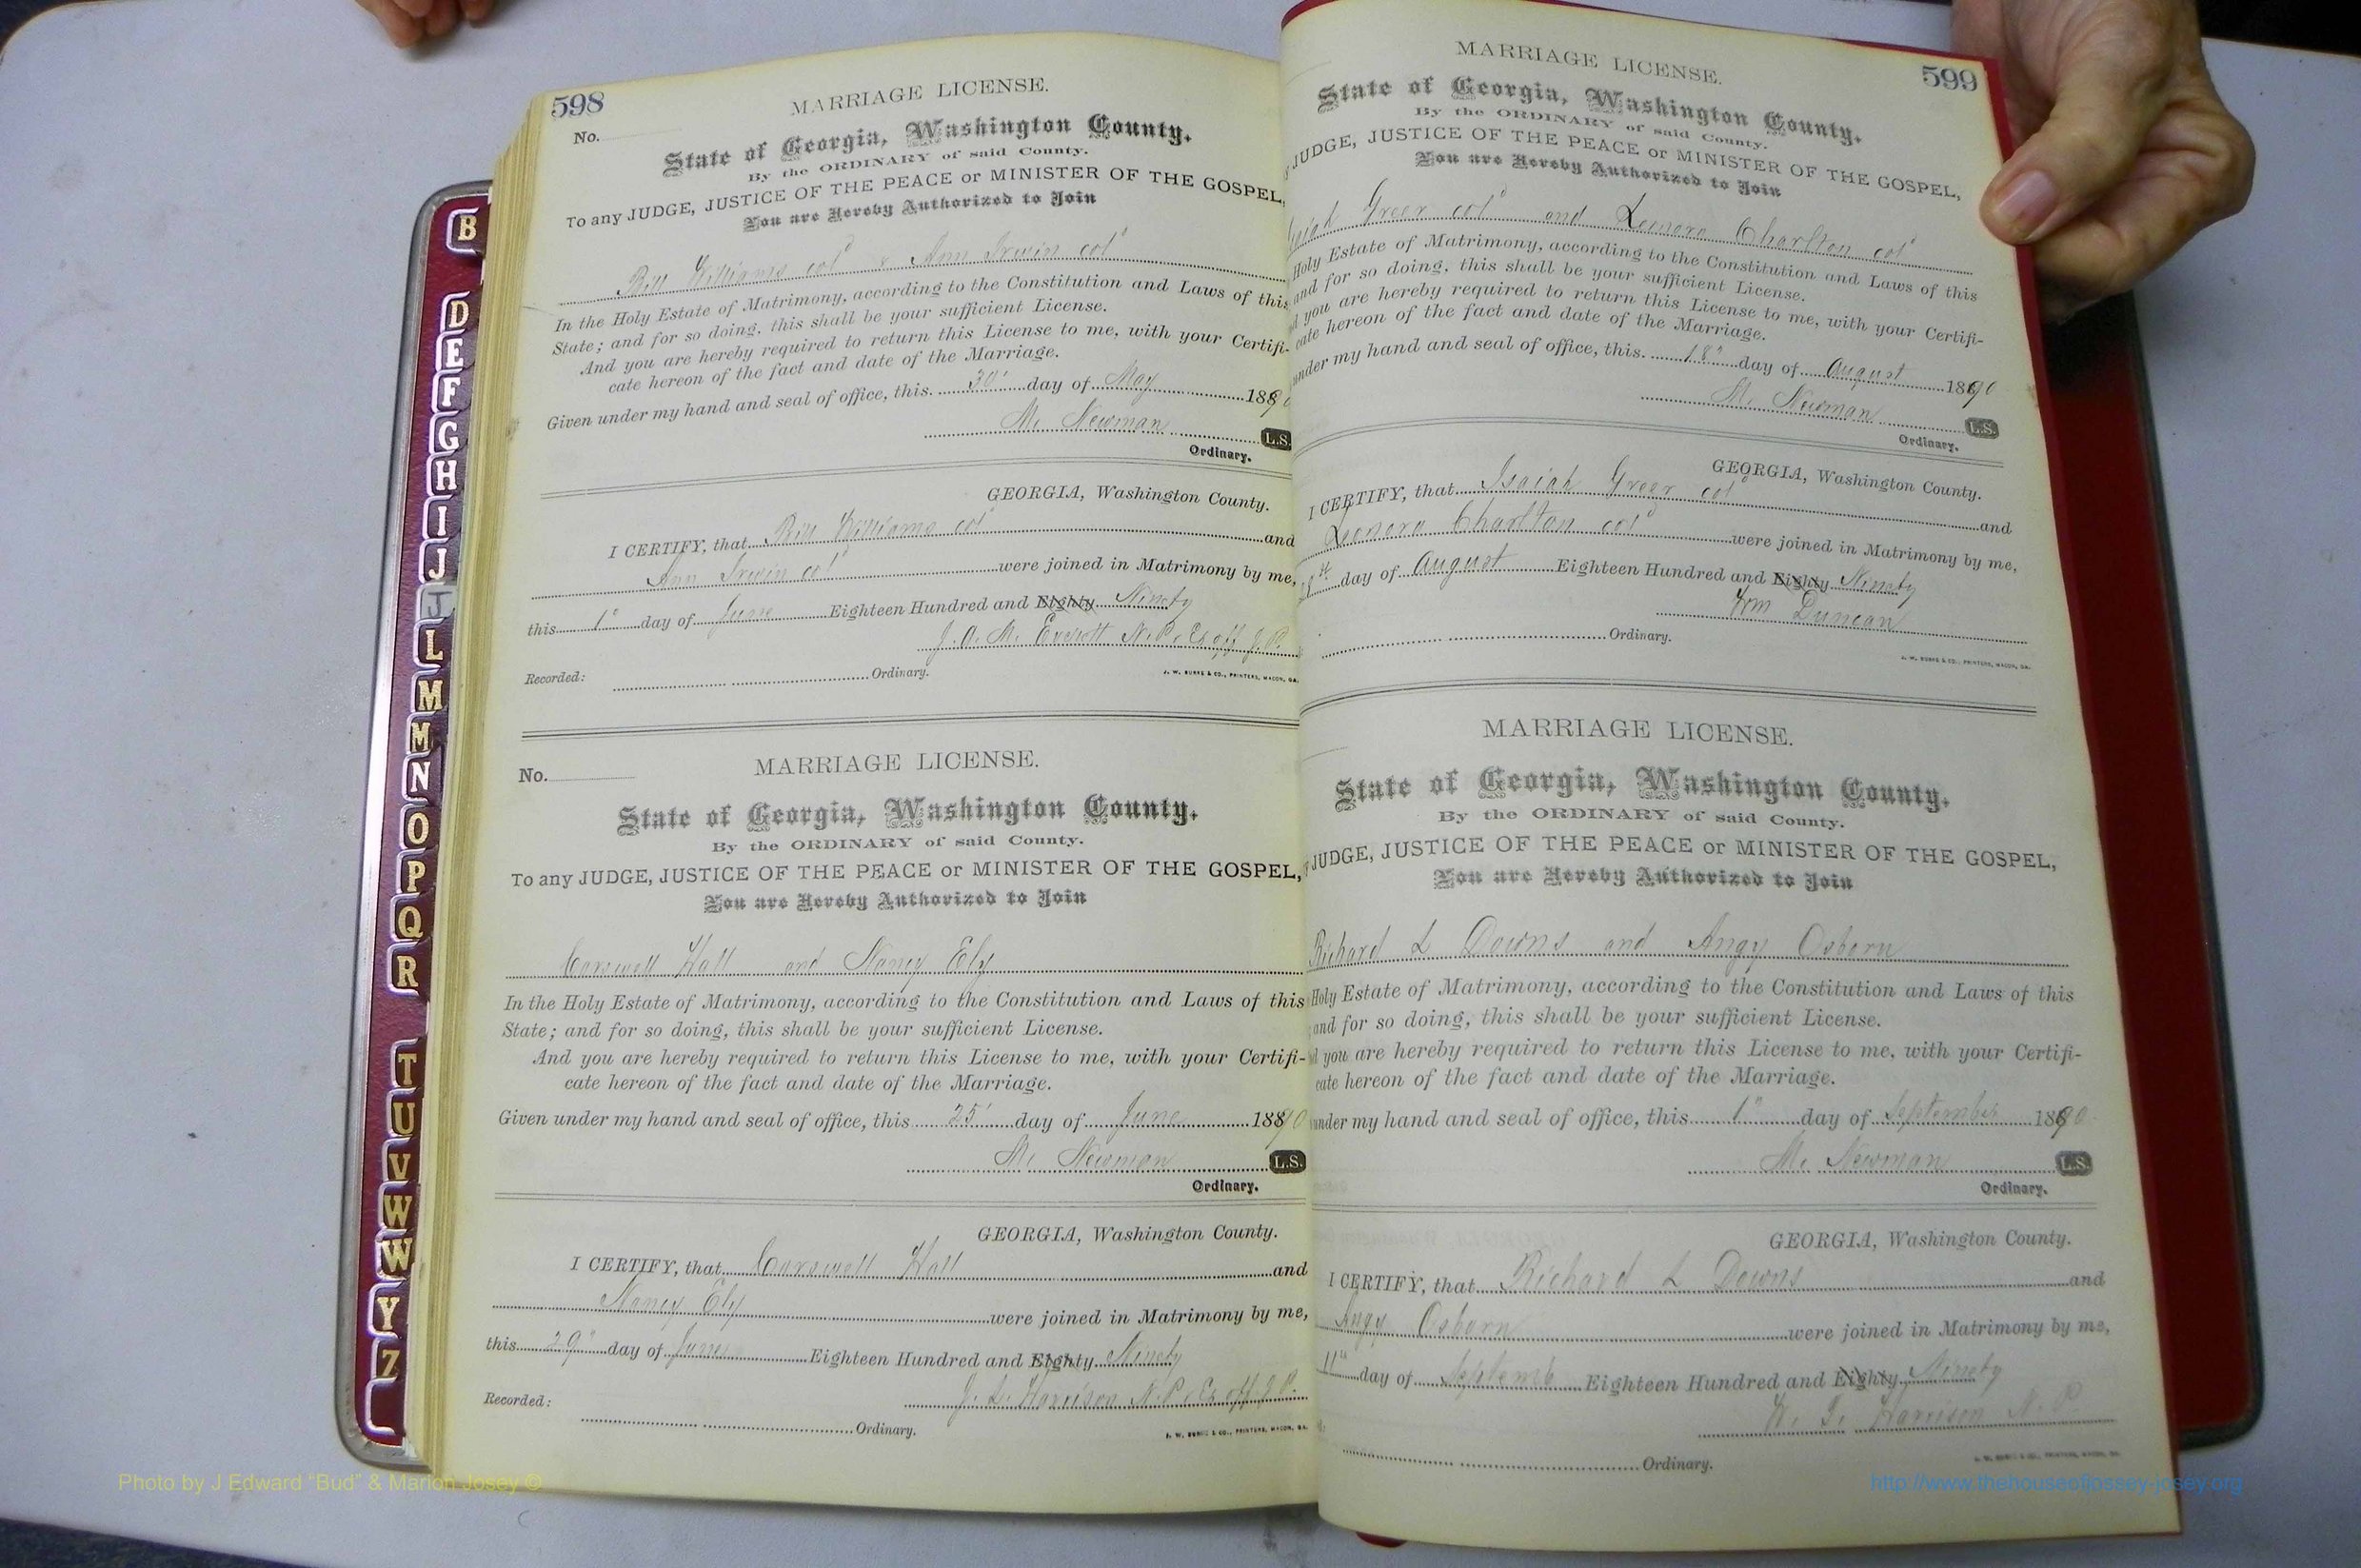 598
MARRIAGE LICENSE.
No.
State of Georgia, Washington County.
By the ORDINARY of said County.
To any JUDGE, JUSTICE OF THE PEACE or MINISTER OF THE GOSPEL,
You are Hereby Authorized to Join
Bill Williams col & Ann Irwin col
In the Holy Estate of Matrimony, according to the Constitution and Laws of this
State; and for so doing, this shall be your sufficient License.
And you are hereby required to return this License to me, with your Certifi-
cate hereon of the fact and date of the Marriage.
Given under my hand and seal of office, this 30" day of May 1890
M. Newman L.S.
Ordinary.
GEORGIA, Washington County.
I CERTIFY, that Bill Williams col and
Ann Irwin col were joined in Matrimony by me,
this 1" day of June Eighteen Hundred and Eighty Ninety
J. A. M. Everett N. P. Ex off J. P.
Recorded: Ordinary.
J. W. BURKE & CO., PRINTERS, MACON, GA.
No.
MARRIAGE LICENSE.
State of Georgia, Washington County.
By the ORDINARY of said County.
To any JUDGE, JUSTICE OF THE PEACE or MINISTER OF THE GOSPEL,
You are Hereby Authorized to Join
Carswell Hall and Nancy Ely
In the Holy Estate of Matrimony, according to the Constitution and Laws of this
State; and for so doing, this shall be your sufficient License.
And you are hereby required to return this License to me, with your Certifi-
cate hereon of the fact and date of the Marriage.
Given under my hand and seal of office, this 25" day of June 1890
M. Newman L.S.
Ordinary.
GEORGIA, Washington County.
I CERTIFY, that Carswell Hall and
Nancy Ely were joined in Matrimony by me,
this 29" day of June Eighteen Hundred and Eighty Ninety
J. L. Harrison N. P. Ex off J. P.
Recorded: Ordinary.
J. W. BURKE & CO., PRINTERS, MACON, GA.
599
MARRIAGE LICENSE.
State of Georgia, Washington County.
By the ORDINARY of said County.
JUDGE, JUSTICE OF THE PEACE or MINISTER OF THE GOSPEL,
You are Hereby Authorized to Join
Isaiah Greer col and Leonora Charlton col
Holy Estate of Matrimony, according to the Constitution and Laws of this
and for so doing, this shall be your sufficient License.
you are hereby required to return this License to me, with your Certifi-
cate hereon of the fact and date of the Marriage.
under my hand and seal of office, this 18" day of August 1890
M. Newman L.S.
Ordinary.
GEORGIA, Washington County.
I CERTIFY, that Isaiah Greer col and
Leonora Charlton col were joined in Matrimony by me,
day of August Eighteen Hundred and Eighty Ninety
Wm Duncan
Ordinary.
J. W. BURKE & CO., PRINTERS, MACON, GA.
MARRIAGE LICENSE.
State of Georgia, Washington County.
By the ORDINARY of said County.
JUDGE, JUSTICE OF THE PEACE or MINISTER OF THE GOSPEL,
You are Hereby Authorized to Join
Richard L Downs and Angy Osborn
Holy Estate of Matrimony, according to the Constitution and Laws of this
and for so doing, this shall be your sufficient License.
you are hereby required to return this License to me, with your Certifi-
cate hereon of the fact and date of the Marriage.
under my hand and seal of office, this 1" day of September 1890
M. Newman L.S.
Ordinary.
GEORGIA, Washington County.
I CERTIFY, that Richard L Downs and
Angy Osborn were joined in Matrimony by me,
11" day of Septemb Eighteen Hundred and Eighty Ninety
Harrison N. P.
Ordinary.
B
D
E
F
G
H
I
J
J
L
M
M
N
O
P
Q
R
T
U
V
W
W
Y
Z
Photo by J Edward "Bud" & Marion Josey ©
http://www.thehouseofjossey-josey.org